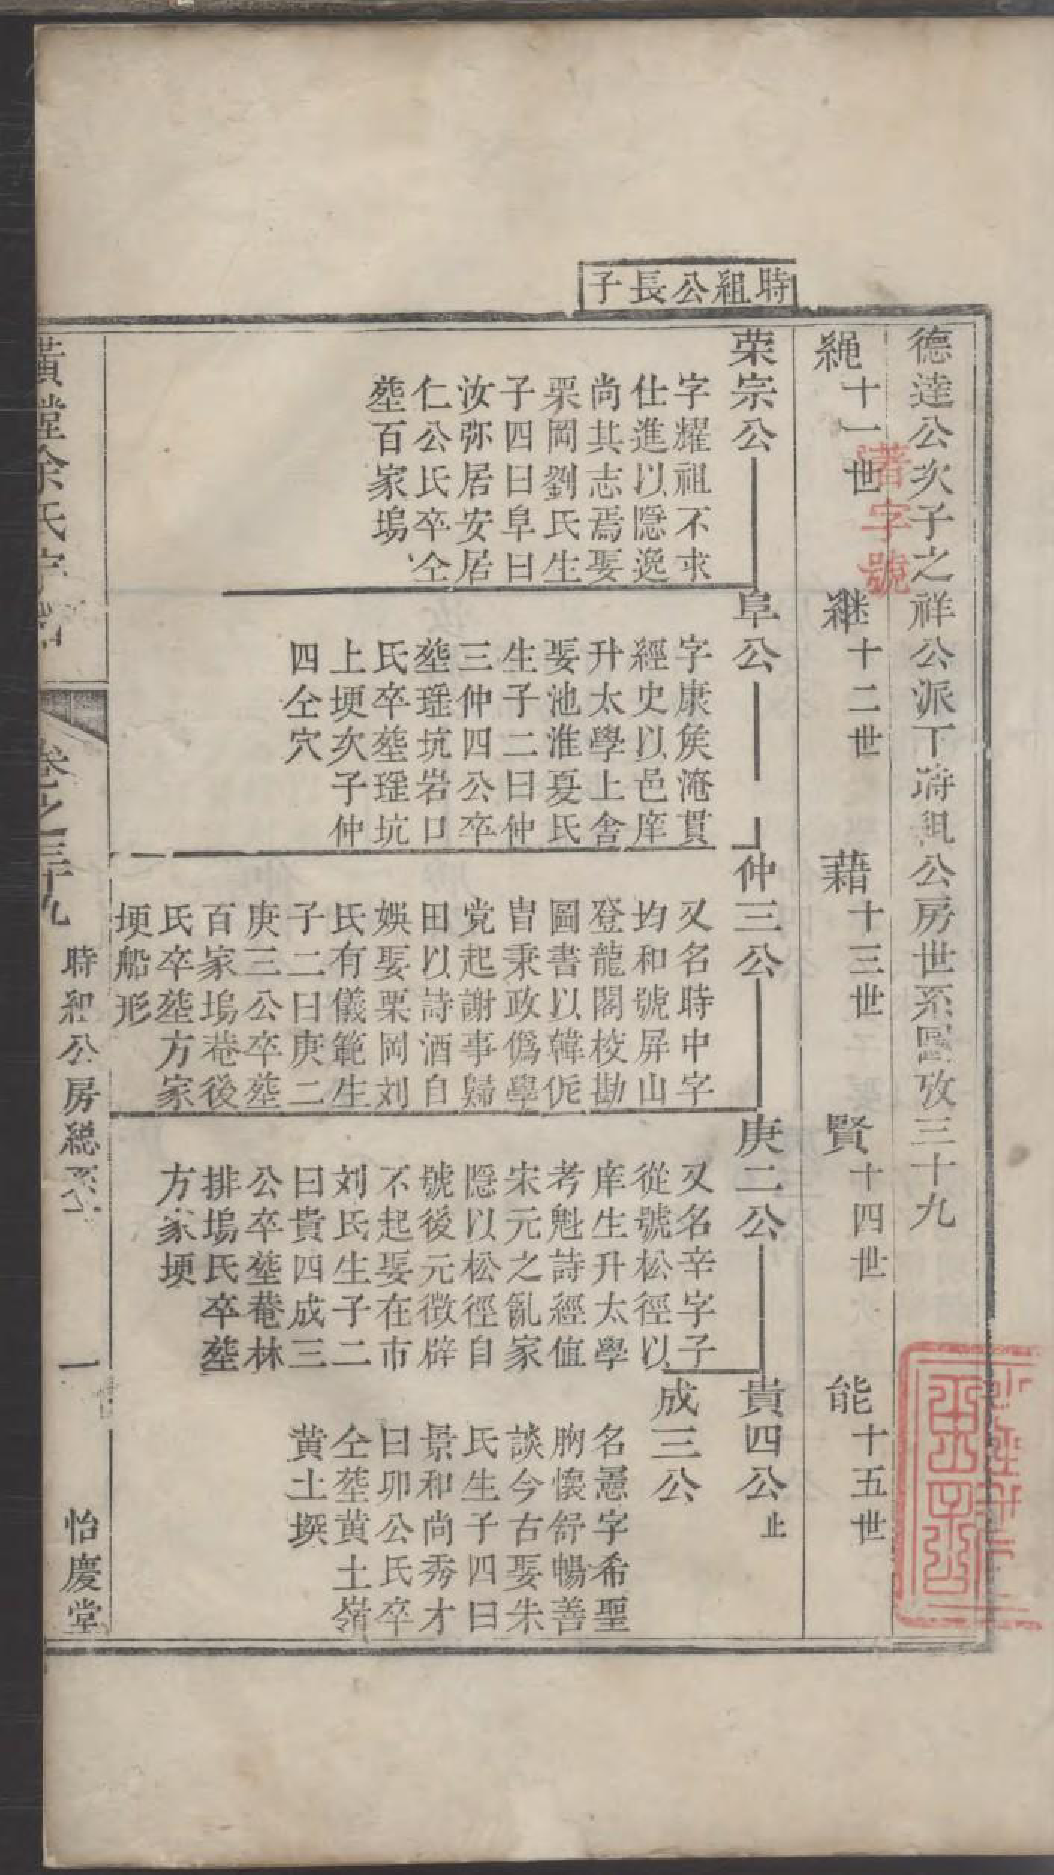 時祖公長子
德達公次子之祥公派下時祖公房世系圖攷三十九
蓍字號
繩十一世
繼十二世
藉十三世
賢十四世
能十五世
荣宗公
字耀祖不求
仕進以隱逸
尚其志焉娶
栗岡劉氏生
子四曰阜曰
汝弥居安居
仁公氏卒仝
塟百家塢
阜公
字康矦淹貫
經史以邑庠
升太學上舍
娶池淮夏氏
生子二曰仲
三仲四公卒
塟瑶坑岩口
氏卒塟瑶坑
上埂次子仲
四仝穴
仲三公
又名時中字
均和號屏山
登龍閣校勘
圖書以韓侂
冑秉政僞學
党起謝事歸
田以詩酒自
娛娶栗岡刘
氏有儀範生
子二曰庚二
庚三公卒塟
百家塢菴後
氏卒塟方家
埂船形
庚二公
又名辛字子
從號松徑以
庠生升太學
考魁詩經值
宋元之亂家
隠以松徑自
號後元徴辟
不起娶在市
刘氏生子二
曰貴四成三
公卒塟菴林
排塢氏卒塟
方家埂
貴四公止
成三公
名憲字希聖
胸懷舒暢善
談今古娶朱
氏生子四曰
景和尚秀才
曰卯公氏卒
仝塟黄土嶺
黄土塽
余氏宗
卷之三十九
時祖公房総系
一
怡慶堂